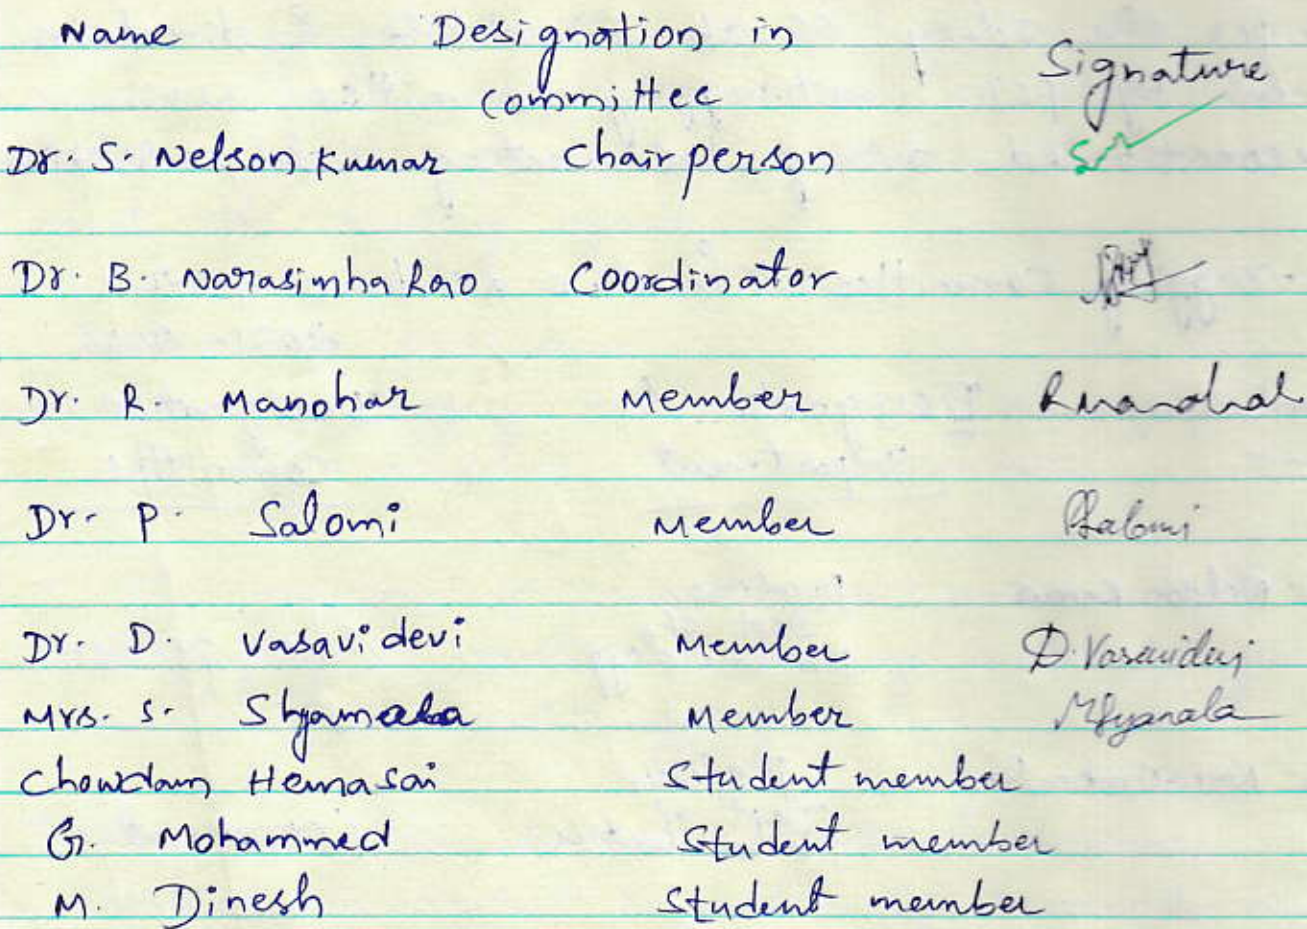 Name Designation in Signature
committee
Dr. S. Nelson Kumar Chairperson
Dr. B. Narasimha Rao Coordinator
Dr. R. Manohar Member R Manohar
Dr. P. Salomi Member PSalomi
Dr. D. Vasavi devi Member D. Vasavidevi
Mrs. S. Shyamala Member
Chowdam Hemasai Student member
G. Mohammed Student member
M. Dinesh Student member